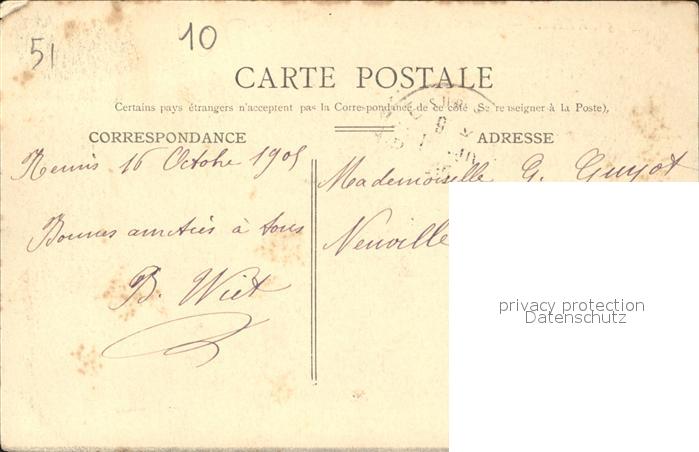 51
10
CARTE POSTALE
Certains pays étrangers n'acceptent pas la Correspondance de ce côté (Se renseigner à la Poste).
CORRESPONDANCE
Reims 16 Octobre 1905
Bonnes amitiés à tous
B. Wiet
ADRESSE
Mademoiselle G. Guyot
Neuville
privacy protection
Datenschutz